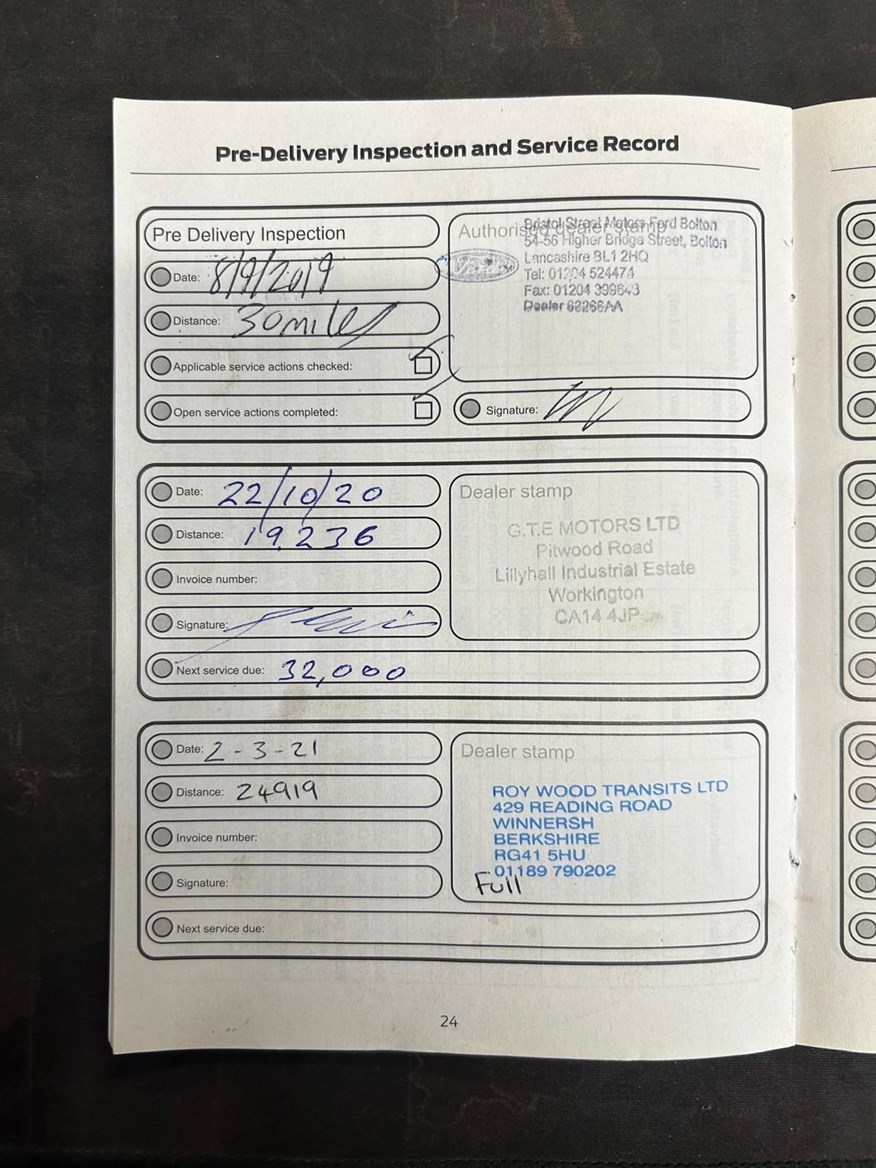 Pre-Delivery Inspection and Service Record
Pre Delivery Inspection
Date: 8/9/2019
Distance: 30 miles
Applicable service actions checked:
Open service actions completed:
Authorised dealer stamp
Bristol Street Motors Ford Bolton
54-56 Higher Bridge Street, Bolton
Lancashire BL1 2HQ
Tel: 01204 524474
Fax: 01204
Dealer
Ford
Signature:
Date: 22/10/20
Distance: 19,236
Invoice number:
Signature:
Next service due: 32,000
Dealer stamp
G.T.E MOTORS LTD
Pitwood Road
Lillyhall Industrial Estate
Workington
CA14 4JP
Date: 2-3-21
Distance: 24919
Invoice number:
Signature:
Next service due:
Dealer stamp
ROY WOOD TRANSITS LTD
429 READING ROAD
WINNERSH
BERKSHIRE
RG41 5HU
01189 790202
Full
24